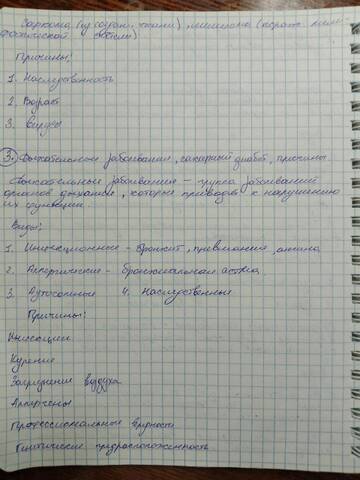 Саркома (у соедин. ткани) лимфома (пораж. лим-
фатической системы)
Причины:
1. Наследственность
2. Возраст
3. Вирусы
3. Дыхательные заболевания, сахарный диабет, причины.
Дыхательные заболевания – группа заболеваний
органов дыхания, которые приводят к нарушению
их функции.
Виды:
1. Инфекционные – бронхит, пневмония, ангина
2. Аллергические – бронхиальная астма
3. Аутоимные 4. Наследственные
Причины:
Инфекции
Курение
Загрязнение воздуха
Аллергены
Профессиональные вредности
Генетическая предрасположенность